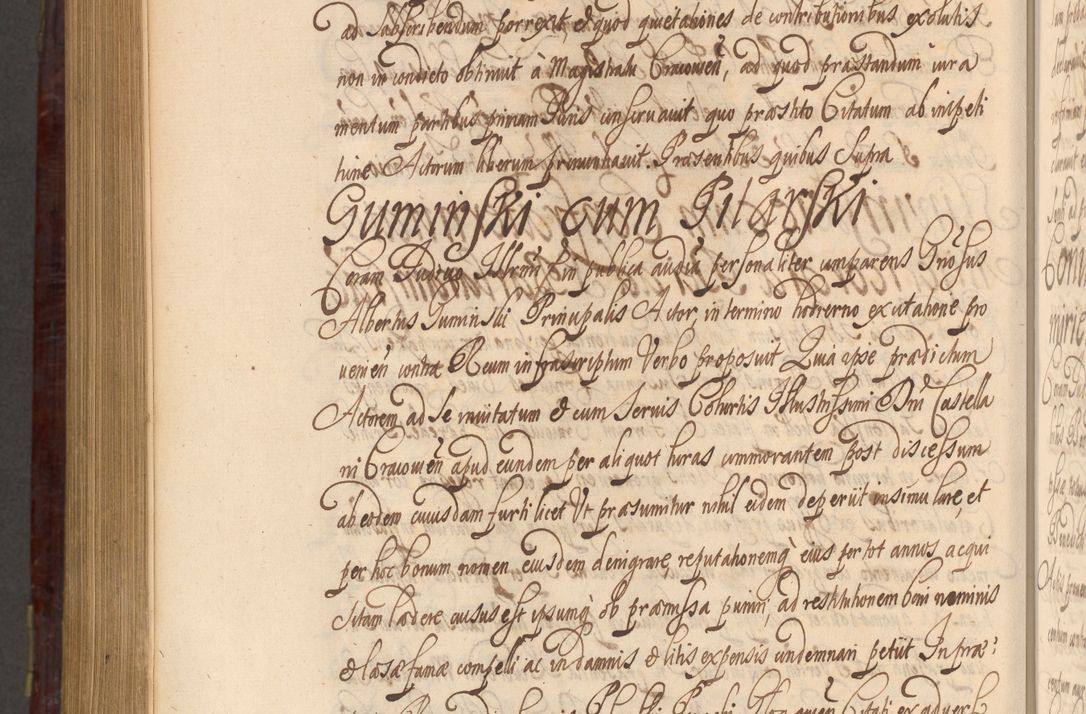 ad subscribendum porrexit, et quod quietationes de contributionibus exolutis
non in condicto obtinuit à Magistratu Cracovien, ad quod præstandum iura
mentum partibus primam Juris conservavit quo præstito Citatum ab inspeti
tione Actorum liberum pronunciavit. Præsentibus quibus Supra
Guminski cum Pilarski
Coram Judicio Illrmi in publica audia personaliter comparens Gnosus
Albertus Guminski Principalis Actor, in termino hodierno ex citatione pro
venien contra Reum infrascriptum Verbo proposuit Quia ipse prædictum
Actorem ad se invitatum & cum servis Cohortis Illustrissimi Dni Castella
ni Cracovien apud eundem per aliquot horas commorantem post discessum
ab eodem cuiusdam furti licet Ut præsumitur nihil eidem deperiit insimulare, et
per hoc bonum nomen eiusdem denigrare, reputationemq eius per tot annos acqui
sitam lædere ausus est ipsumq ob præmissa puniri, ad restitutionem boni nominis
& læsæ famæ compelli ac in damnis & litis expensis condemnari petiit In præ: